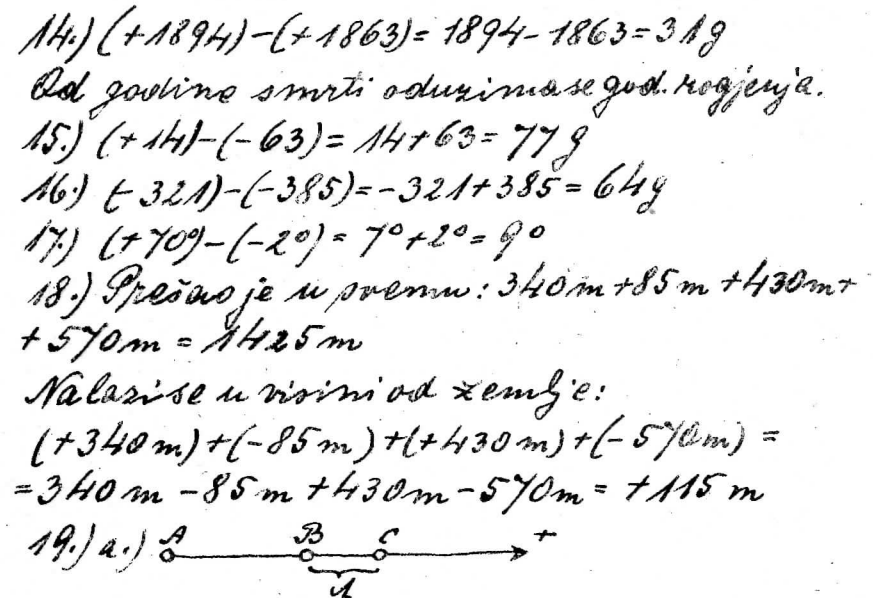 14.) (+1894)-(+1863)= 1894-1863=31g
Od godine smrti oduzima se god. rogjenja.
15.) (+14)-(-63)= 14+63= 77g
16.) (-321)-(-385)=-321+385= 64g
17.) (+7°)-(-2°)= 7°+2°= 9°
18.) Prešao je u svemu: 340m+85m+430m+
+570m = 1425m
Nalazi se u visini od zemlje:
(+340m)+(-85m)+(+430m)+(-570m) =
=340m-85m+430m-570m= +115m
19.) a.) A B C +
1